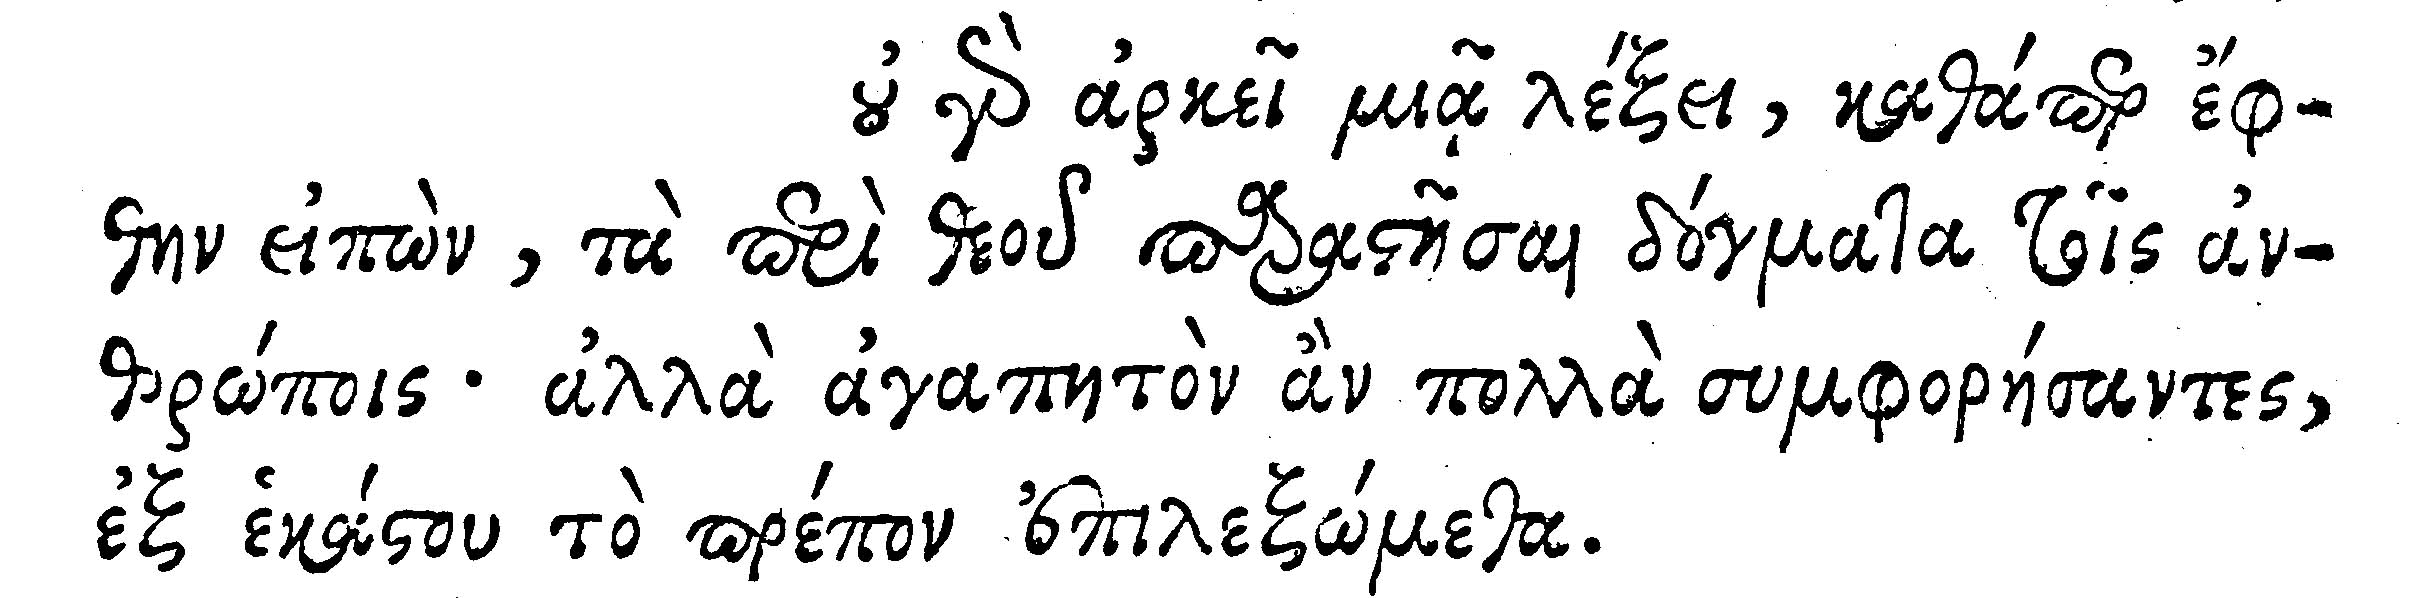 οὐ γὰρ ἀρκεῖ μιᾷ λέξει, καθάπερ ἔφ-
θην εἰπὼν, τὰ περὶ θεοῦ παραστῆσαι δόγματα τοῖς ἀν-
θρώποις· ἀλλὰ ἀγαπητὸν ἂν πολλὰ συμφορήσαντες,
ἐξ ἑκάστου τὸ πρέπον ἐπιλεξώμεθα.